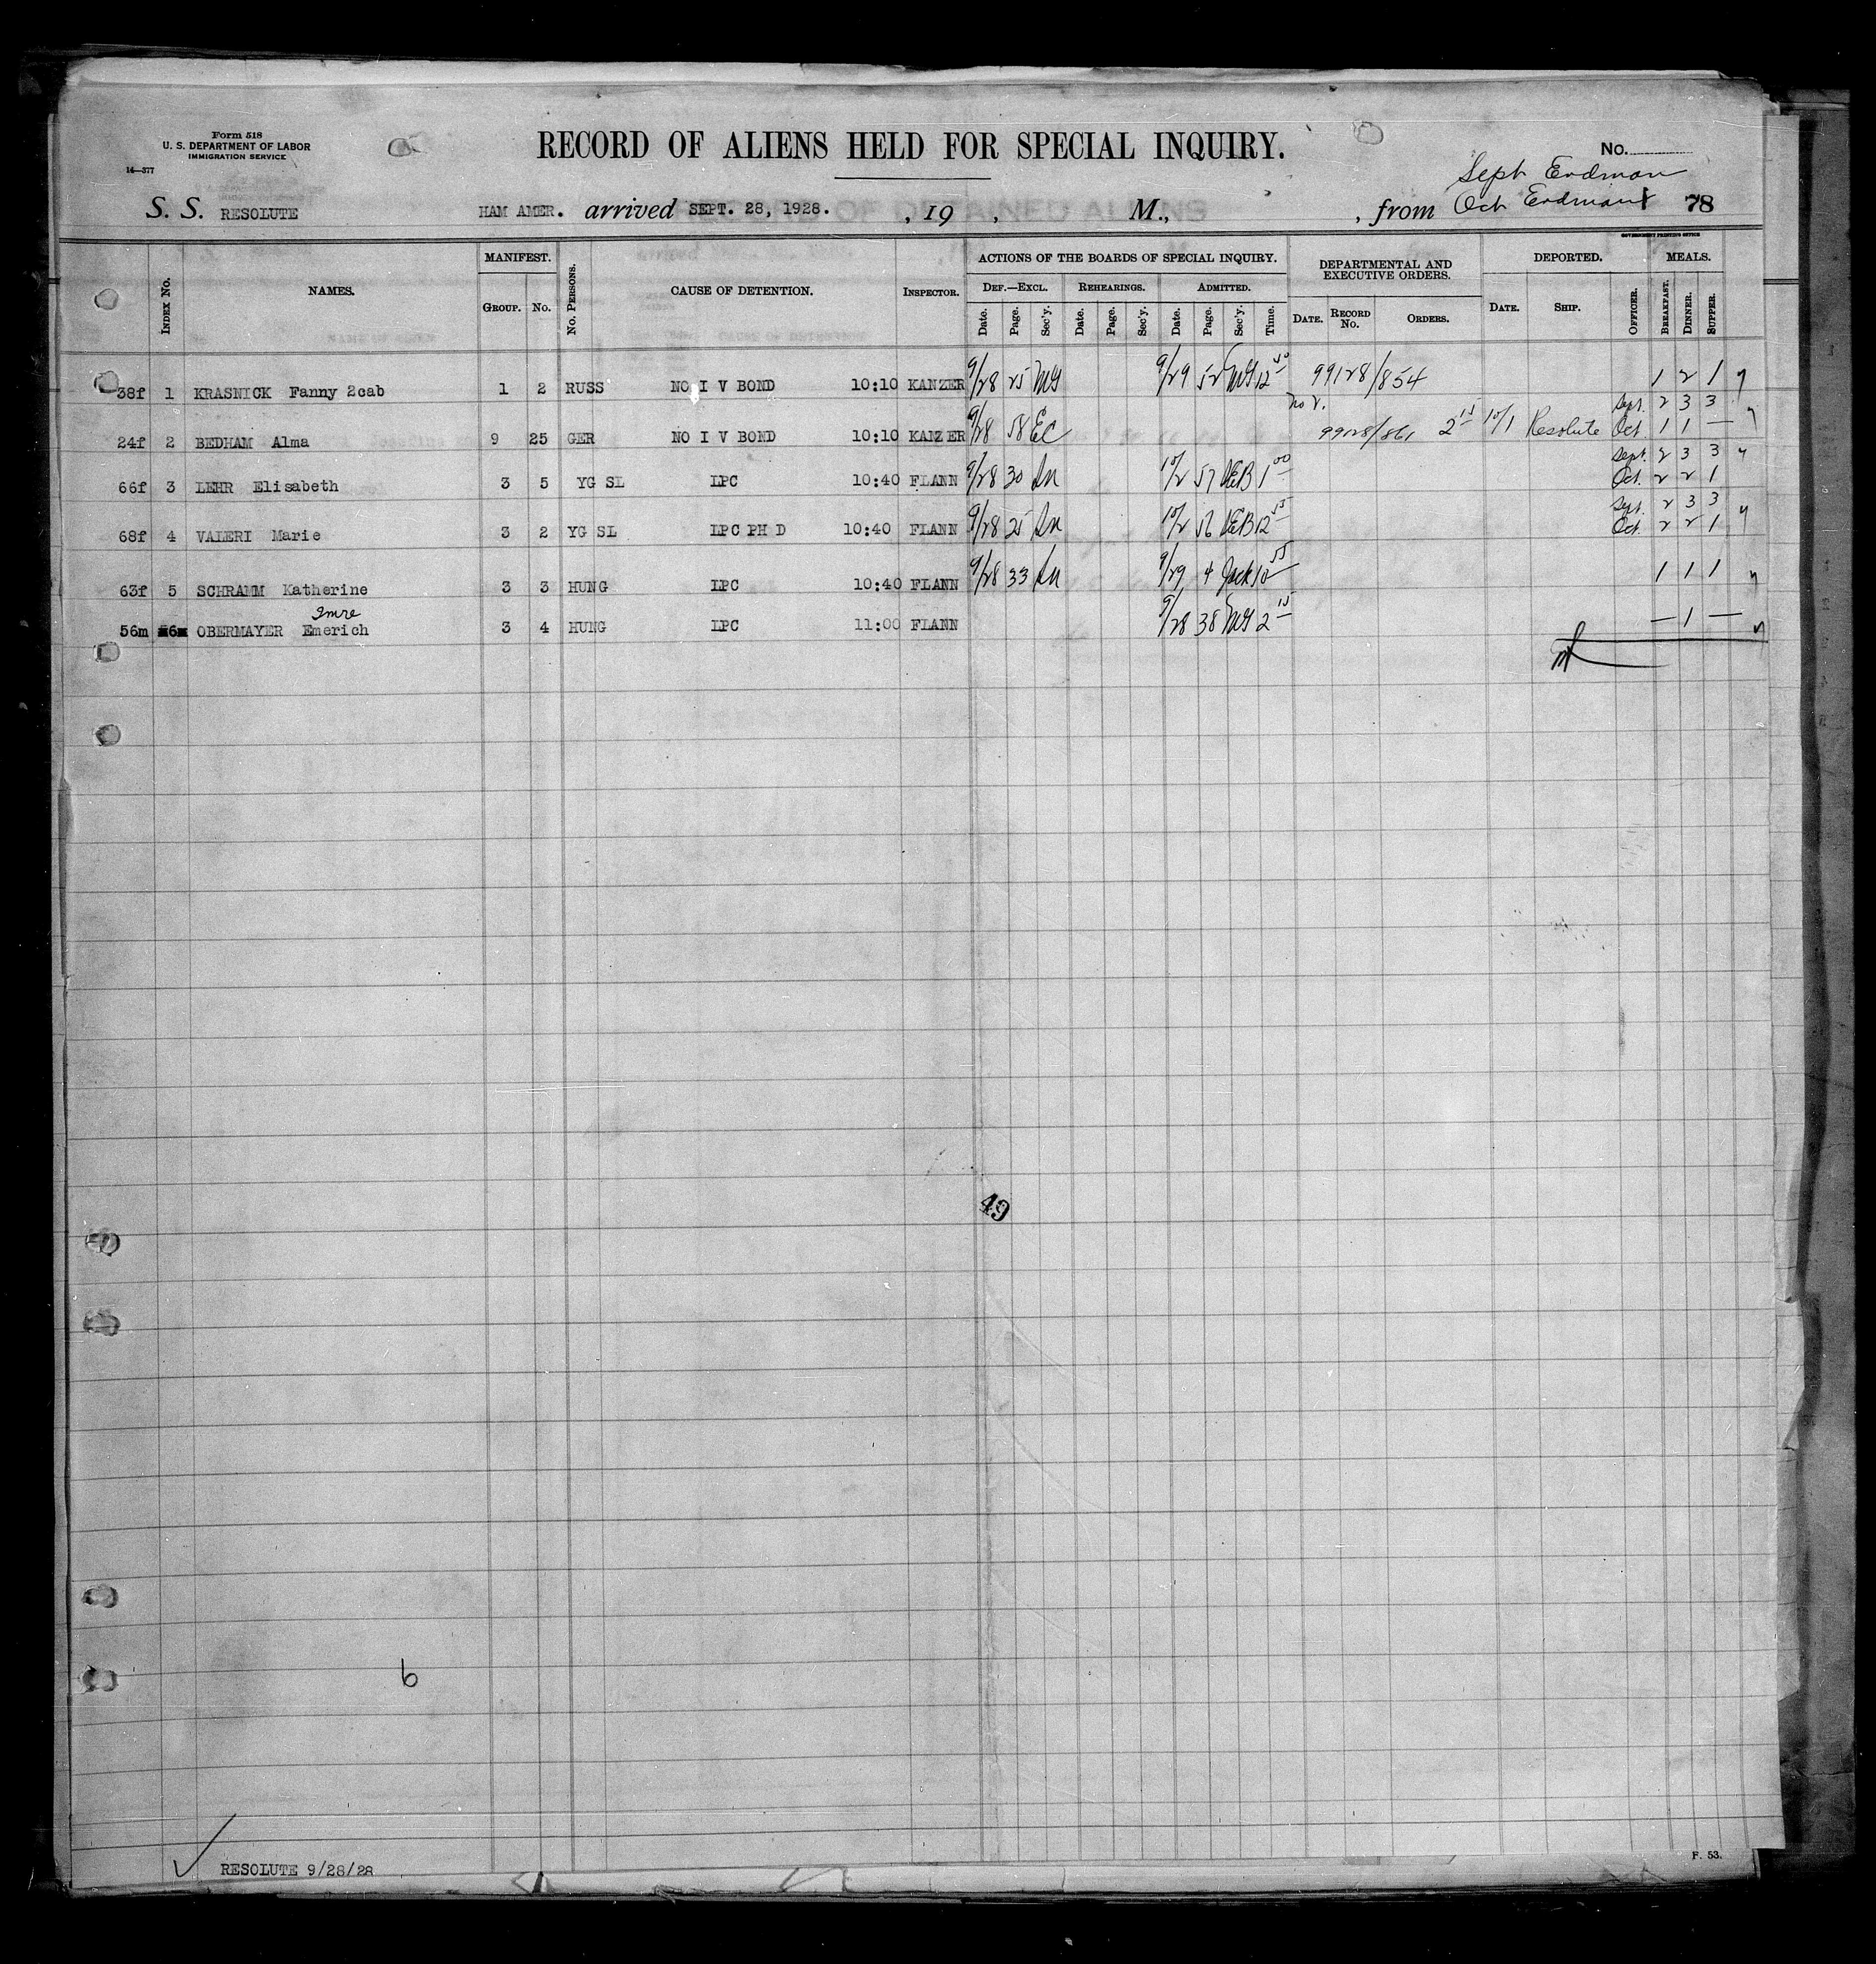 Form 518
U. S. DEPARTMENT OF LABOR
IMMIGRATION SERVICE
14—377
RECORD OF ALIENS HELD FOR SPECIAL INQUIRY.
No.
Sept Erdman
S. S. RESOLUTE HAM AMER. arrived SEPT. 28, 1928. , 19 , M., , from Oct Erdman 78
GOVERNMENT PRINTING OFFICE
Index No. NAMES. MANIFEST. Group. No. No. Persons. CAUSE OF DETENTION. Inspector. ACTIONS OF THE BOARDS OF SPECIAL INQUIRY. DEPARTMENTAL AND EXECUTIVE ORDERS. DEPORTED. MEALS.
Def.—Excl. Rehearings. Admitted.
Date. Page. Sec'y. Date. Page. Sec'y. Date. Page. Sec'y. Time. Date. Record No. Orders. Date. Ship. Officer. Breakfast. Dinner. Supper.
38f 1 KRASNICK Fanny 2cab 1 2 RUSS NO I V BOND 10:10 KANZER 9/28 25 MG 9/29 52 MG 12 40 99128/854 1 2 1
Sept. 2 3 3
24f 2 BEDHAM Alma 9 25 GER NO I V BOND 10:10 KANZER 9/28 58 EC 99128/861 2 15 10/1 Resolute Oct. 1 1 —
Sept. 2 3 3
66f 3 LEHR Elisabeth 3 5 YG SL LPC 10:40 FLANN 9/28 30 10/2 57 EB 1 00 Oct. 2 2 1
Sept. 2 3 3
68f 4 VALERI Marie 3 2 YG SL LPC PH D 10:40 FLANN 9/28 25 10/2 56 EB 12 55 Oct. 2 2 1
63f 5 SCHRAMM Katherine 3 3 HUNG LPC 10:40 FLANN 9/28 33 9/29 4 Jack 10 55 1 1 1
Imre
56m 6 OBERMAYER Emerich 3 4 HUNG LPC 11:00 FLANN 9/28 38 MG 2 15 — 1 —
49
6
RESOLUTE 9/28/28
F. 53.